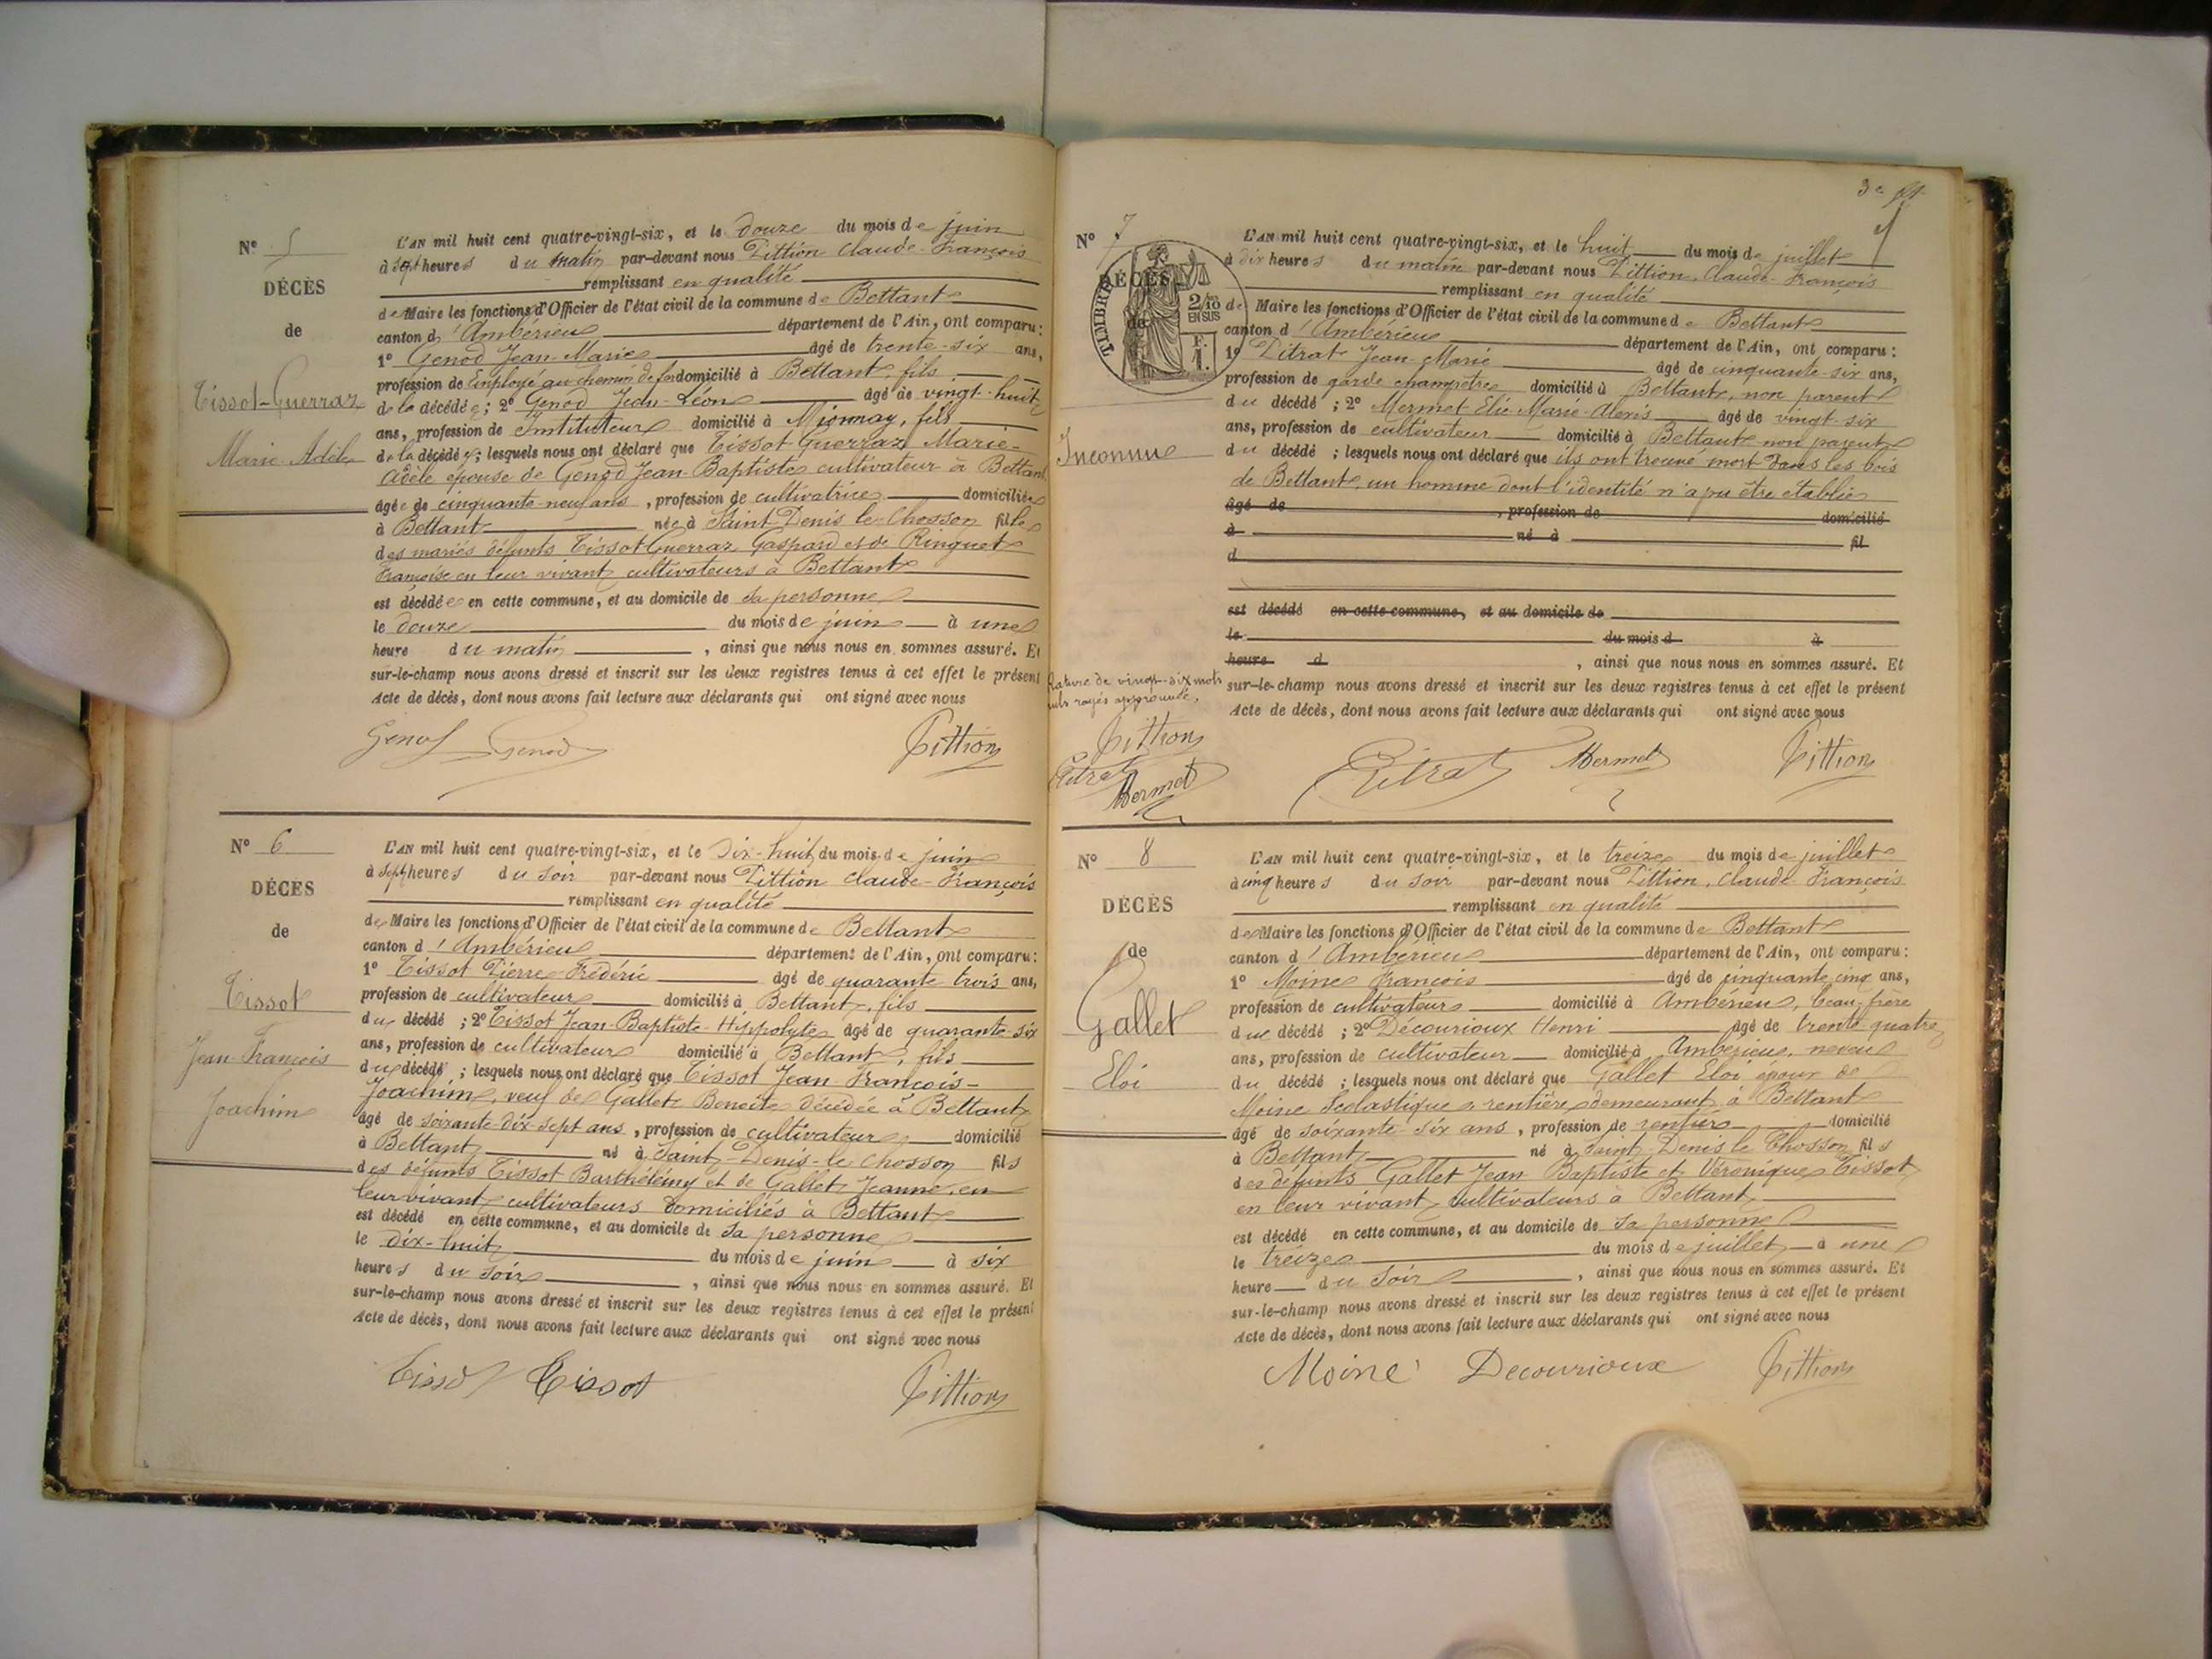 N° 5
DÉCÈS
de
Tissot-Guerraz
Marie Adèle
L'AN mil huit cent quatre-vingt-six, et le douze du mois de juin
à sept heures du matin par-devant nous Pittion Claude-François
remplissant en qualité
de Maire les fonctions d'Officier de l'état civil de la commune de Bettant
canton d'Ambérieu département de l'Ain, ont comparu:
1° Genod Jean-Marie âgé de trente-six ans,
profession de Employé au chemin de fer domicilié à Bettant, fils
de la décédée; 2° Genod Jean-Léon âgé de vingt-huit
ans, profession de Instituteur domicilié à Mionnay, fils
de la décédée; lesquels nous ont déclaré que Tissot-Guerraz Marie-
Adèle épouse de Genod Jean-Baptiste cultivateur à Bettant
âgée de cinquante-neuf ans, profession de cultivatrice domiciliée
à Bettant née à Saint-Denis-le-Chosson fille
des mariés défunts Tissot-Guerraz Gaspard et de Ringuet
Françoise en leur vivant cultivateurs à Bettant
est décédée en cette commune, et au domicile de sa personne
le douze du mois de juin à une
heure du matin, ainsi que nous nous en sommes assuré. Et
sur-le-champ nous avons dressé et inscrit sur les deux registres tenus à cet effet le présent
Acte de décès, dont nous avons fait lecture aux déclarants qui ont signé avec nous
Genod Genod Pittion
N° 6
DÉCÈS
de
Tissot
Jean-François
Joachim
L'AN mil huit cent quatre-vingt-six, et le dix-huit du mois de juin
à sept heures du soir par-devant nous Pittion Claude-François
remplissant en qualité
de Maire les fonctions d'Officier de l'état civil de la commune de Bettant
canton d'Ambérieu département de l'Ain, ont comparu:
1° Tissot Pierre-Frédéric âgé de quarante trois ans,
profession de cultivateur domicilié à Bettant, fils
du décédé; 2° Tissot Jean-Baptiste-Hippolyte âgé de quarante-six
ans, profession de cultivateur domicilié à Bettant, fils
du décédé; lesquels nous ont déclaré que Tissot Jean-François-
Joachim, veuf de Gallet Benoite décédée à Bettant
âgé de soixante-dix-sept ans, profession de cultivateur domicilié
à Bettant né à Saint-Denis-le-Chosson fils
des défunts Tissot Barthélémy et de Gallet Jeanne, en
leur vivant cultivateurs domiciliés à Bettant
est décédé en cette commune, et au domicile de sa personne
le dix-huit du mois de juin à six
heures du soir, ainsi que nous nous en sommes assuré. Et
sur-le-champ nous avons dressé et inscrit sur les deux registres tenus à cet effet le présent
Acte de décès, dont nous avons fait lecture aux déclarants qui ont signé avec nous
Tissot Tissot Pittion
3e
N° 7
DÉCÈS
de
TIMBRE
2/10 EN SUS
F. 1.
Inconnu
L'AN mil huit cent quatre-vingt-six, et le huit du mois de juillet
à dix heures du matin par-devant nous Pittion, Claude-François
remplissant en qualité
de Maire les fonctions d'Officier de l'état civil de la commune de Bettant
canton d'Ambérieu département de l'Ain, ont comparu:
1° Pitrat Jean-Marie âgé de cinquante-six ans,
profession de garde champêtre domicilié à Bettant, non parent
du décédé; 2° Mermet Elie-Marie-Alexis âgé de vingt-six
ans, profession de cultivateur domicilié à Bettant non parent
du décédé; lesquels nous ont déclaré que ils ont trouvé mort dans les bois
de Bettant, un homme dont l'identité n'a pu être établie
âgé de , profession de domicilié
à né à fil
d
est décédé en cette commune, et au domicile de
le du mois d à
heure d , ainsi que nous nous en sommes assuré. Et
sur-le-champ nous avons dressé et inscrit sur les deux registres tenus à cet effet le présent
Acte de décès, dont nous avons fait lecture aux déclarants qui ont signé avec nous
Rature de vingt-six mots
nuls rayés approuvée,
Pittion
Pitrat
Mermet
Pitrat Mermet Pittion
N° 8
DÉCÈS
de
Gallet
Eloi
L'AN mil huit cent quatre-vingt-six, et le treize du mois de juillet
à cinq heures du soir par-devant nous Pittion, Claude-François
remplissant en qualité
de Maire les fonctions d'Officier de l'état civil de la commune de Bettant
canton d'Ambérieu département de l'Ain, ont comparu:
1° Moine François âgé de cinquante cinq ans,
profession de cultivateur domicilié à Ambérieu, beau-frère
du décédé; 2° Décourioux Henri âgé de trente-quatre
ans, profession de cultivateur domicilié à Ambérieu, neveu
du décédé; lesquels nous ont déclaré que Gallet Eloi époux de
Moine Scolastique rentière demeurant à Bettant
âgé de soixante-six ans, profession de rentier domicilié
à Bettant né à Saint-Denis-le-Chosson fils
des défunts Gallet Jean Baptiste et Véronique Tissot
en leur vivant cultivateurs à Bettant
est décédé en cette commune, et au domicile de sa personne
le treize du mois de juillet à une
heure du soir, ainsi que nous nous en sommes assuré. Et
sur-le-champ nous avons dressé et inscrit sur les deux registres tenus à cet effet le présent
Acte de décès, dont nous avons fait lecture aux déclarants qui ont signé avec nous
Moine Decourioux Pittion